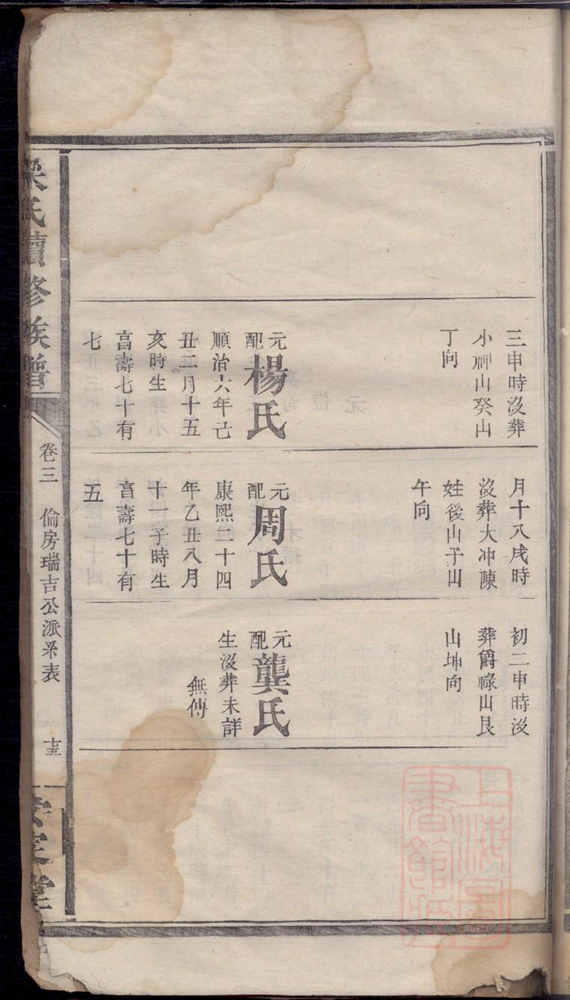 三申時沒葬
小神山癸山
丁向
元配楊氏
順治六年己
丑二月十五
亥時生
享壽七十有
七
月十八戌時
沒葬大冲陳
姓後山子山
午向
元配周氏
康熙二十四
年乙丑八月
十一子時生
享壽七十有
五
初二申時沒
葬爵祿山艮
山坤向
元配龔氏
生沒葬未詳
無傳
氏續修族譜
卷三 倫房瑞吉公派系表
安定堂
上海圖書館藏